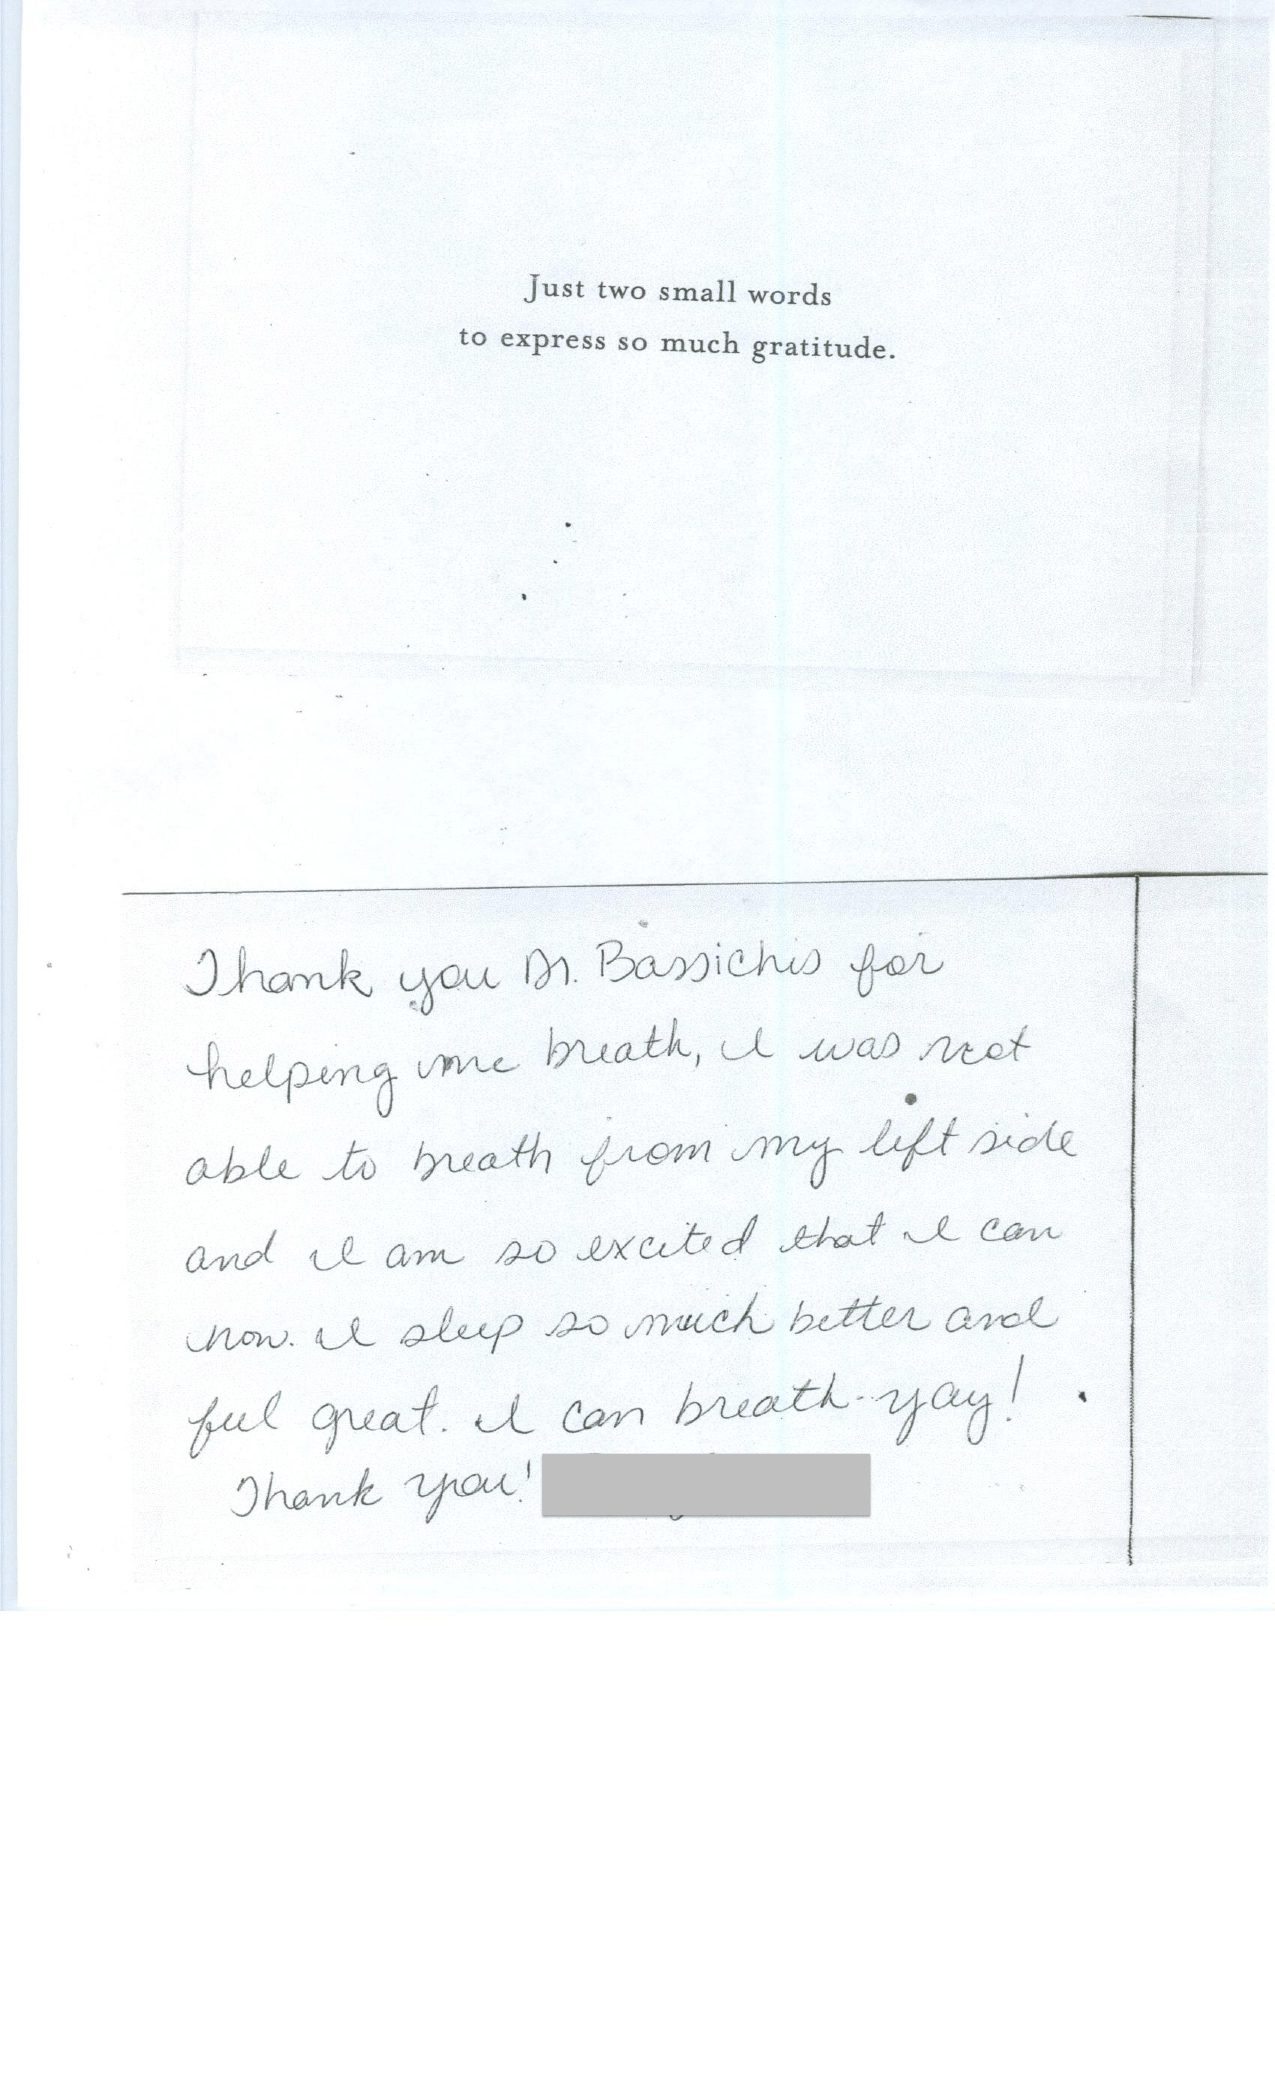 Just two small words
to express so much gratitude.
Thank you Dr. Bassichis for
helping me breath, I was not
able to breath from my left side
and I am so excited that I can
now. I sleep so much better and
feel great. I can breath-yay!
Thank you!